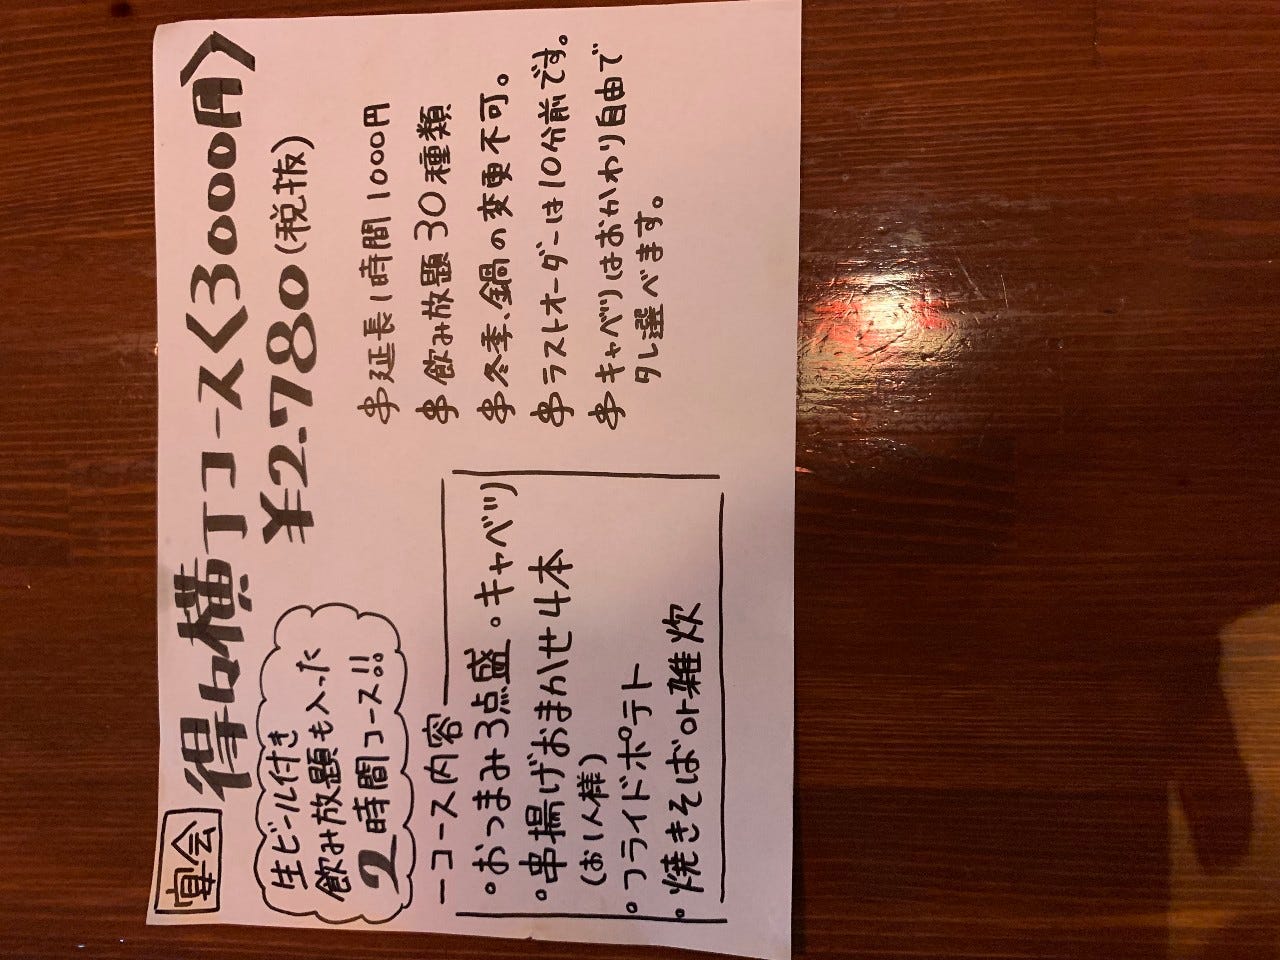 宴会
得々横丁コース〈3000円〉
¥2.780(税抜)
生ビール付き
飲み放題も入った
2時間コース!!
コース内容
。おつまみ3点盛 。キャベツ
。串揚げおまかせ4本
(お1人様)
。フライドポテト
。焼きそば or 雑炊
串延長1時間1000円
串飲み放題30種類
串冬季、鍋の変更不可。
串ラストオーダーは10分前です。
串キャベツはおかわり自由で
タレ選べます。